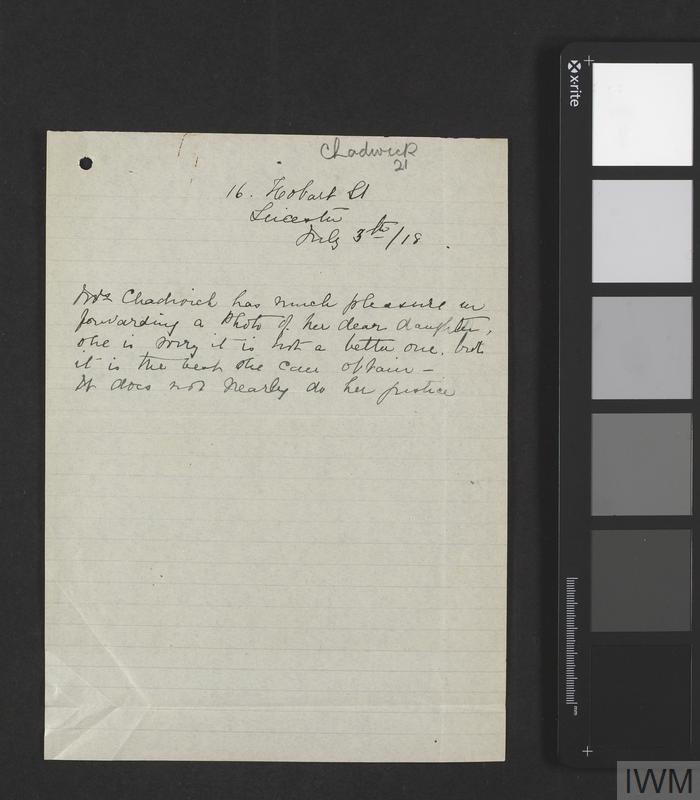 Chadwick
21
16. Hobart St
Leicester
July 3th/18.
Mrs Chadwick has much pleasure in
forwarding a Photo of her dear daughter,
she is sorry it is not a better one, but
it is the best she can obtain –
It does not nearly do her justice
x-rite
mm
IWM